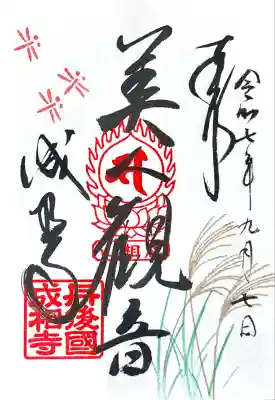 奉拝
令和七年九月七日
美人観音
成相寺
丹後國
成相寺